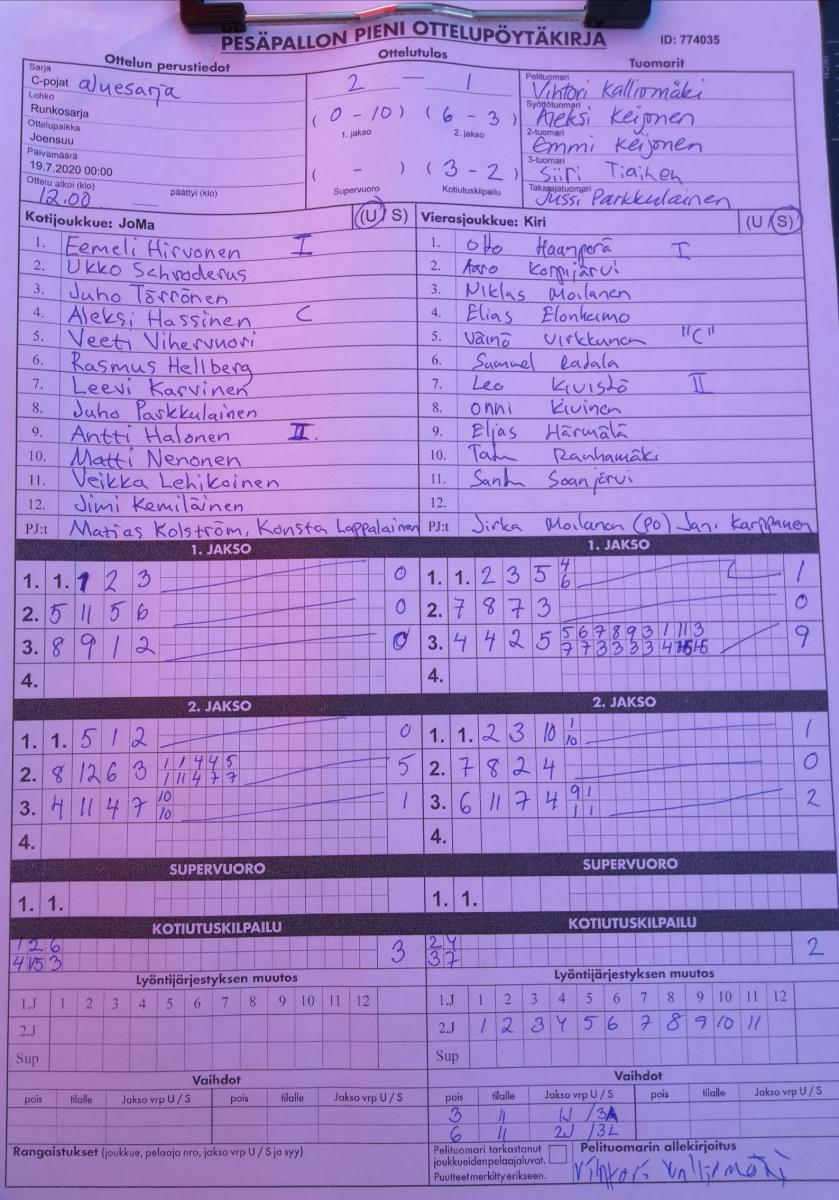 PESÄPALLON PIENI OTTELUPÖYTÄKIRJA
ID: 774035
Ottelun perustiedot
Sarja
C-pojat aluesarja
Lohko
Runkosarja
Ottelupaikka
Joensuu
Päivämäärä
19.7.2020 00:00
Ottelu alkoi (klo) päättyi (klo)
12.00
Ottelutulos
2 — 1
(0 - 10) (6 - 3)
1. jakso 2. jakso
( - ) (3 - 2)
Supervuoro Kotiutuskilpailu
Tuomarit
Pelituomari
Vihtori Kalliomäki
Syöttötuomari
Aleksi Keijonen
2-tuomari
Emmi Keijonen
3-tuomari
Siiri Tiainen
Takarajatuomari
Jussi Parkkulainen
Kotijoukkue: JoMa (U/S)
1. Eemeli Hirvonen I
2. Ukko Schroderus
3. Juho Törrönen
4. Aleksi Hassinen C
5. Veeti Vihervuori
6. Rasmus Hellberg
7. Leevi Karvinen
8. Juho Parkkulainen
9. Antti Halonen II.
10. Matti Nenonen
11. Veikka Lehikoinen
12. Jimi Kemiläinen
PJ:t Matias Kolström, Konsta Lappalainen
Vierasjoukkue: Kiri (U/S)
1. Otto Haanperä I
2. Aaro Korpijärvi
3. Niklas Moilanen
4. Elias Elonheimo
5. Väinö Virkkunen "C"
6. Samuel
7. Leo Kivistö II
8. Onni Kivinen
9. Elias Härmälä
10. Rauhamäki
11.
12.
PJ:t Jirka Moilanen (PO) Jani Karppanen
1. JAKSO
1. 1. 1 2 3 0
2. 5 11 5 6 0
3. 8 9 1 2 0
4.
1. JAKSO
1. 1. 2 3 5 4 1
6
2. 7 8 7 3 0
3. 4 4 2 5 5 6 7 8 9 3 1 11 3 9
7 7 3 3 3 3 4
4.
2. JAKSO
1. 1. 5 1 2 0
2. 8 12 6 3 1 1 4 4 5 5
1 11 4 7 7
3. 4 11 4 7 10 1
10
4.
2. JAKSO
1. 1. 2 3 10 1 1
10
2. 7 8 2 4 0
3. 6 11 7 4 9 1 2
1 1
4.
SUPERVUORO
1. 1.
SUPERVUORO
1. 1.
KOTIUTUSKILPAILU
1 2 6 3
4 3
KOTIUTUSKILPAILU
2 4 2
3 7
Lyöntijärjestyksen muutos
1.J 1 2 3 4 5 6 7 8 9 10 11 12
2.J
Sup
Lyöntijärjestyksen muutos
1.J 1 2 3 4 5 6 7 8 9 10 11 12
2.J 1 2 3 4 5 6 7 8 9 10 11
Sup
Vaihdot
pois tilalle Jakso vrp U / S pois tilalle Jakso vrp U / S
Vaihdot
pois tilalle Jakso vrp U / S pois tilalle Jakso vrp U / S
3 11 1J /3A
6 11 2J /3L
Rangaistukset (joukkue, pelaaja nro, jakso vrp U / S ja syy)
Pelituomari tarkastanut
joukkueidenpelaajaluvat.
Puutteet merkitty erikseen.
Pelituomarin allekirjoitus
Vihtori Kalliomäki